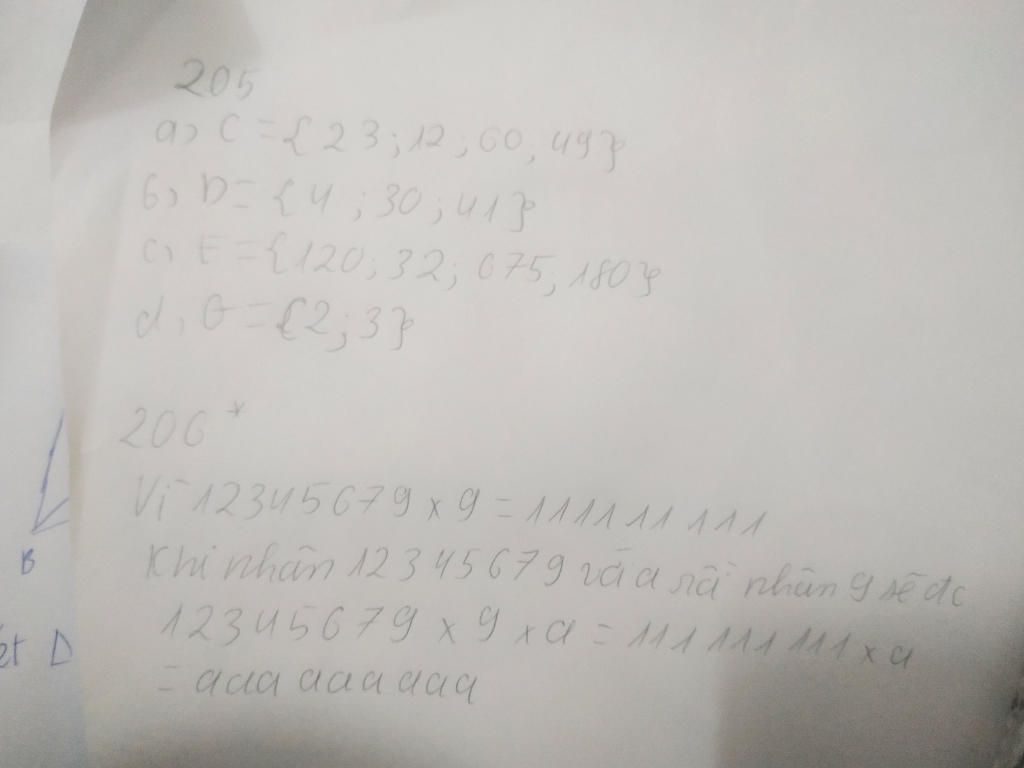 205
a, C = {23; 12; 60, 49}
b, D = {4; 30; 41}
c, E = {120; 32; 675, 180}
d, G = {2; 3}
206*
Vì 12345679 x 9 = 111111 111
Khi nhân 12345679 và a rồi nhân 9 sẽ đc
12345679 x 9 x a = 111 111 111 x a
= aaa aaa aaa
B
ét D